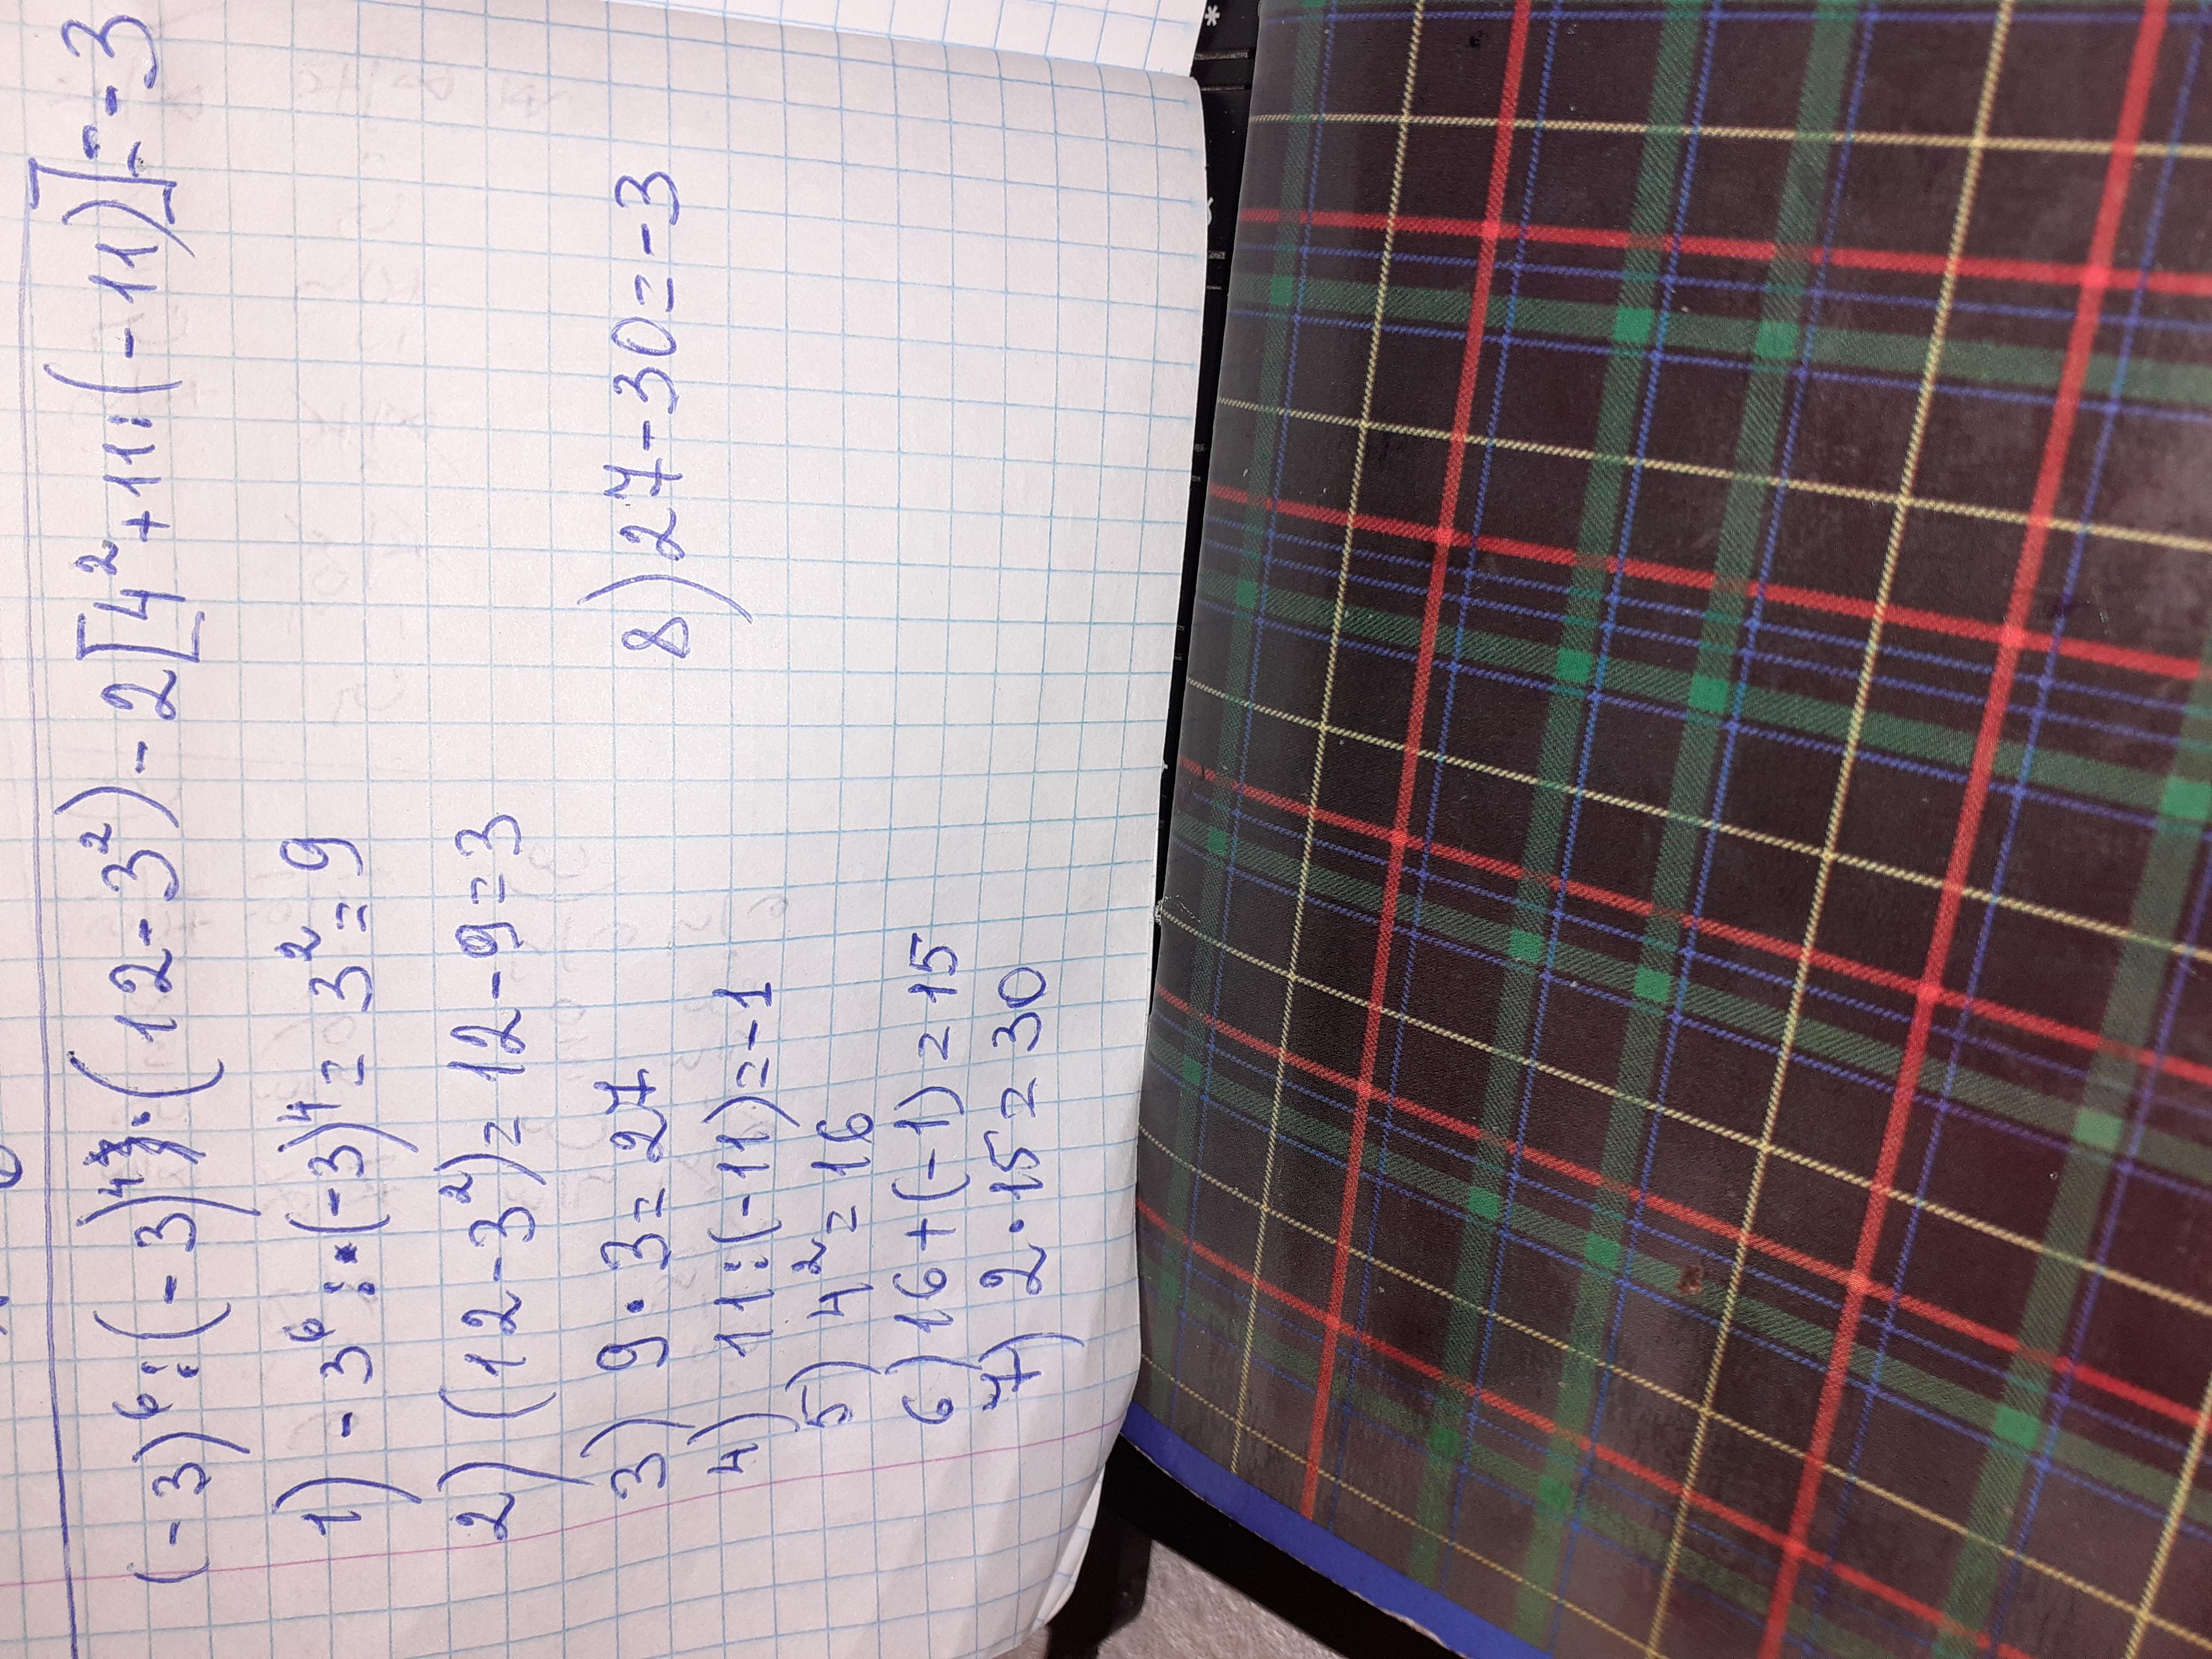 (-3)⁶:(-3)⁴·(12-3²)-2[4²+11:(-11)]=-3
1) -3⁶:(-3)⁴=3²=9
2) (12-3²)=12-9=3
3) 9·3=27
8) 27-30=-3
4) 11:(-11)=-1
5) 4²=16
6) 16+(-1)=15
7) 2·15=30